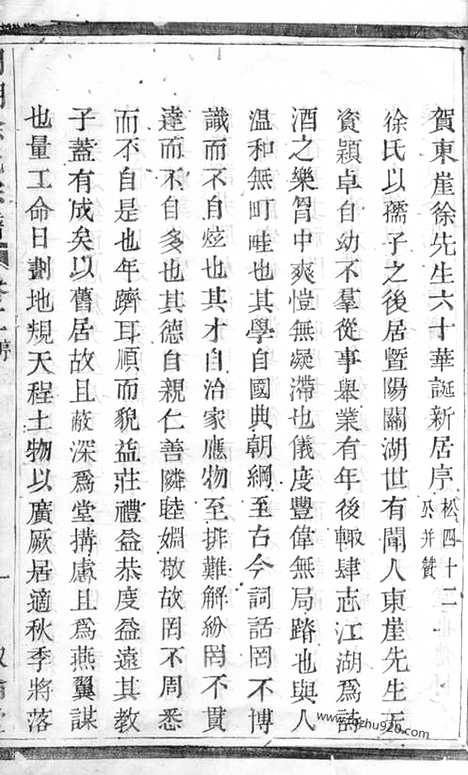 賀東崖徐先生六十華誕新居序 松四十二
公并贊
徐氏以孺子之後居暨陽關湖世有聞人東崖先生天
資穎卓自幼不羣從事舉業有年後輙肆志江湖爲詩
酒之樂胷中爽愷無凝滯也儀度豐偉無局蹐也與人
温和無町畦也其學自國典朝綱至古今詞話罔不博
識而不自炫也其才自治家應物至排難解紛罔不貫
達而不自多也其德自親仁善隣睦婣敬故罔不周悉
而不自是也年躋耳順而貌益莊禮益恭度益遠其教
子葢有成矣以舊居故且蔽深爲堂搆慮且爲燕翼謀
也量工命日劃地規天程土物以廣厥居適秋季將落